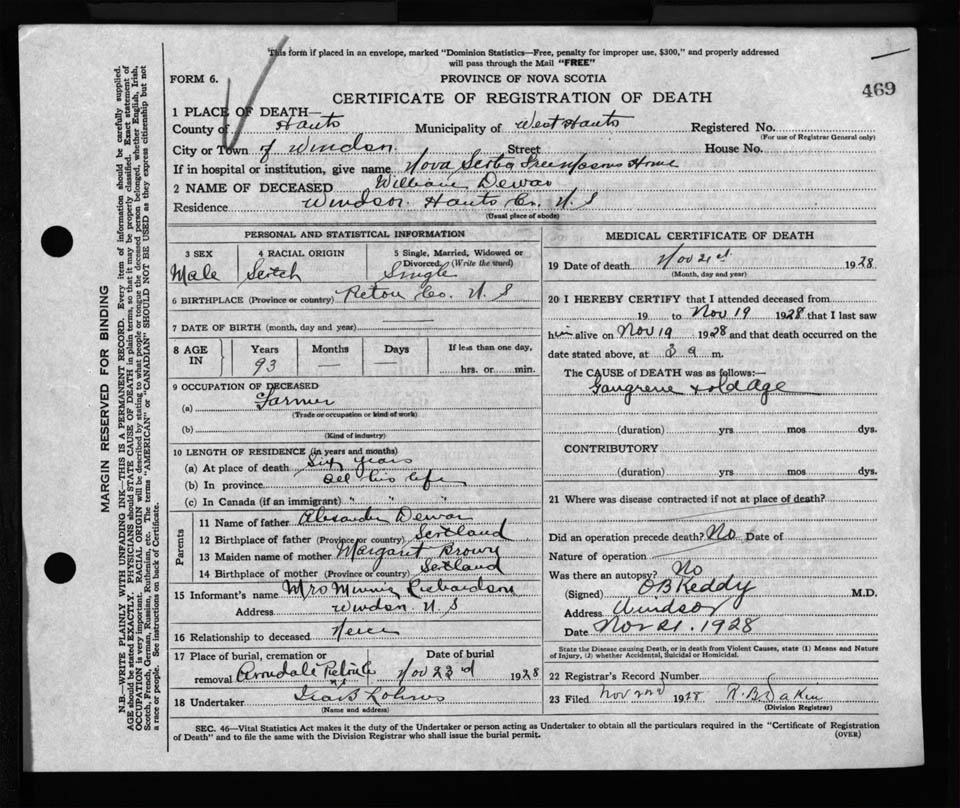 This form if placed in an envelope, marked "Dominion Statistics—Free, penalty for improper use, $300," and properly addressed
will pass through the Mail "FREE"
FORM 6.
PROVINCE OF NOVA SCOTIA
469
CERTIFICATE OF REGISTRATION OF DEATH
1 PLACE OF DEATH—
County of Hants Municipality of West Hants Registered No.
(For use of Registrar General only)
City or Town of Windsor Street House No.
If in hospital or institution, give name Nova Scotia Freemasons Home
2 NAME OF DECEASED William Dewar
Residence Windsor Hants Co. N. S
(Usual place of abode)
PERSONAL AND STATISTICAL INFORMATION
3 SEX Male
4 RACIAL ORIGIN Scotch
5 Single, Married, Widowed or Divorced. (Write the word) Single
6 BIRTHPLACE (Province or country) Pictou Co. N. S
7 DATE OF BIRTH (month, day and year) —
8 AGE IN Years 93 Months — Days If less than one day, hrs. or min.
9 OCCUPATION OF DECEASED
(a) Farmer
(Trade or occupation or kind of work)
(b)
(Kind of industry)
10 LENGTH OF RESIDENCE (in years and months)
(a) At place of death Six years
(b) In province all his life
(c) In Canada (if an immigrant) " " "
Parents
11 Name of father Alexander Dewar
12 Birthplace of father (Province or country) Scotland
13 Maiden name of mother Margaret Brown
14 Birthplace of mother (Province or country) Scotland
15 Informant's name Mrs Minnie Richardson
Address Windsor N. S
16 Relationship to deceased Neice
17 Place of burial, cremation or removal Avondale Pictou Co N S
Date of burial Nov 23rd 1928
18 Undertaker
(Name and address)
MEDICAL CERTIFICATE OF DEATH
19 Date of death Nov 21st 1928
(Month, day and year)
20 I HEREBY CERTIFY that I attended deceased from
19 to Nov 19 1928 that I last saw
him alive on Nov 19 1928 and that death occurred on the
date stated above, at 3 a m.
The CAUSE of DEATH was as follows:—
Gangrene + old Age
(duration) yrs mos dys.
CONTRIBUTORY
(duration) yrs mos dys.
21 Where was disease contracted if not at place of death?
Did an operation precede death? No Date of
Nature of operation
Was there an autopsy? No
(Signed) O B Keddy M.D.
Address Windsor
Date Nov 21. 1928
State the Disease causing Death, or in death from Violent Causes, state (1) Means and Nature
of Injury, (2) whether Accidental, Suicidal or Homicidal.
22 Registrar's Record Number
23 Filed Nov 22nd 1928
(Division Registrar)
SEC. 46—Vital Statistics Act makes it the duty of the Undertaker or person acting as Undertaker to obtain all the particulars required in the "Certificate of Registration
of Death" and to file the same with the Division Registrar who shall issue the burial permit.
(OVER)
MARGIN RESERVED FOR BINDING
N.B.—WRITE PLAINLY WITH UNFADING INK—THIS IS A PERMANENT RECORD. Every item of information should be carefully supplied.
AGE should be stated EXACTLY. PHYSICIANS should STATE CAUSE OF DEATH in plain terms, so that it may be properly classified. Exact statement of
OCCUPATION is very important. RACIAL ORIGIN will be described by stating to what people or tongue the deceased person belonged, whether English, Irish,
Scotch, French, German, Russian, Ruthenian, etc. The terms "AMERICAN" or "CANADIAN" SHOULD NOT BE USED as they express citizenship but not
a race or people. See instructions on back of Certificate.